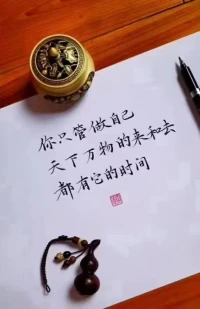 你只管做自己
天下万物的来和去
都有它的时间